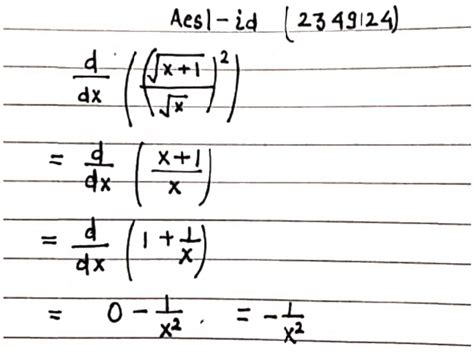 Aesl-id (2349124)
d/dx ((√(x+1)/√x)²)
= d/dx ((x+1)/x)
= d/dx (1 + 1/x)
= 0 - 1/x² . = -1/x²